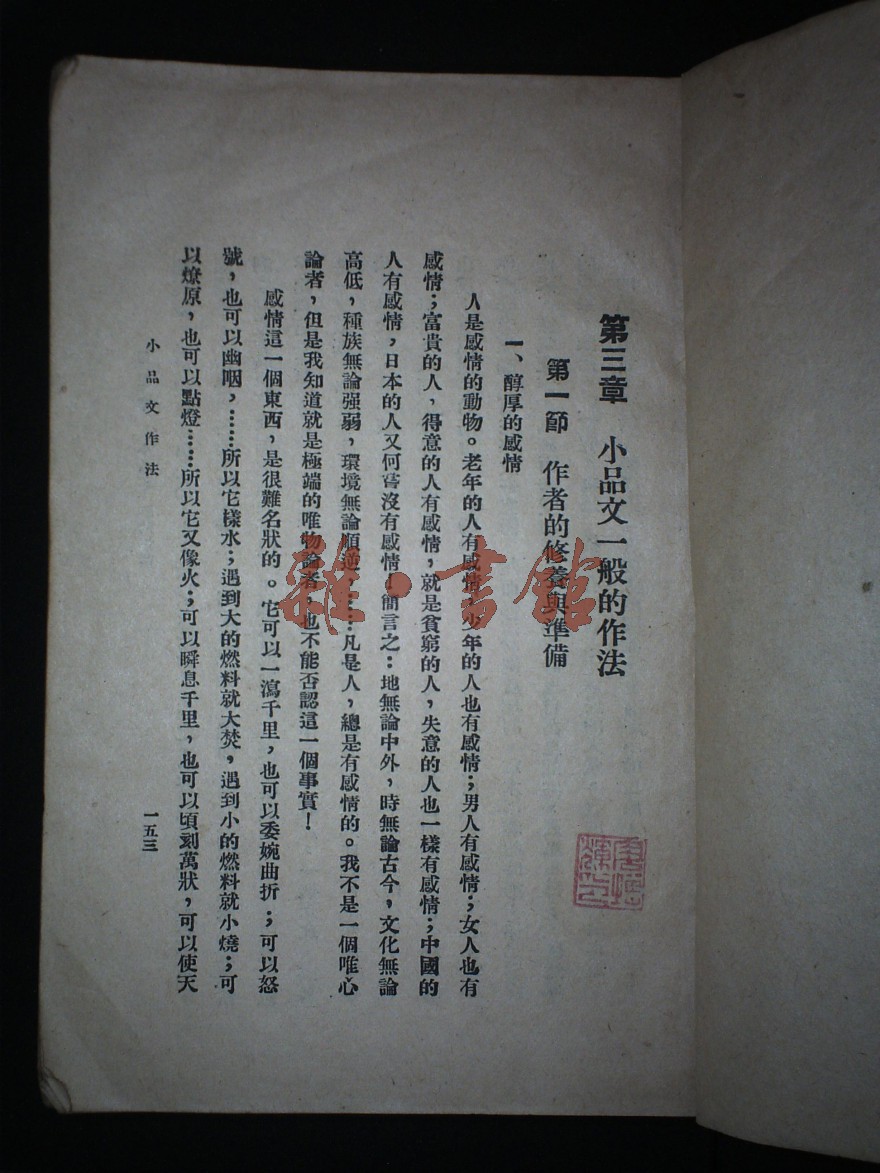 第三章 小品文一般的作法
第一節 作者的修養與準備
一、醇厚的感情
人是感情的動物。老年的人有感情，少年的人也有感情；男人有感情；女人也有
感情；富貴的人，得意的人有感情，就是貧窮的人，失意的人也一樣有感情；中國的
人有感情，日本的人又何嘗沒有感情！簡言之：地無論中外，時無論古今，文化無論
高低，種族無論强弱，環境無論順逆，……凡是人，總是有感情的。我不是一個唯心
論者，但是我知道就是極端的唯物論者，也不能否認這一個事實！
感情這一個東西，是很難名狀的。它可以一瀉千里，也可以委婉曲折；可以怒
號，也可以幽咽，……所以它樣水；遇到大的燃料就大焚，遇到小的燃料就小燒；可
以燎原，也可以點燈……所以它又像火；可以瞬息千里，也可以頃刻萬狀，可以使天
小品文作法
一五三
雜·書館